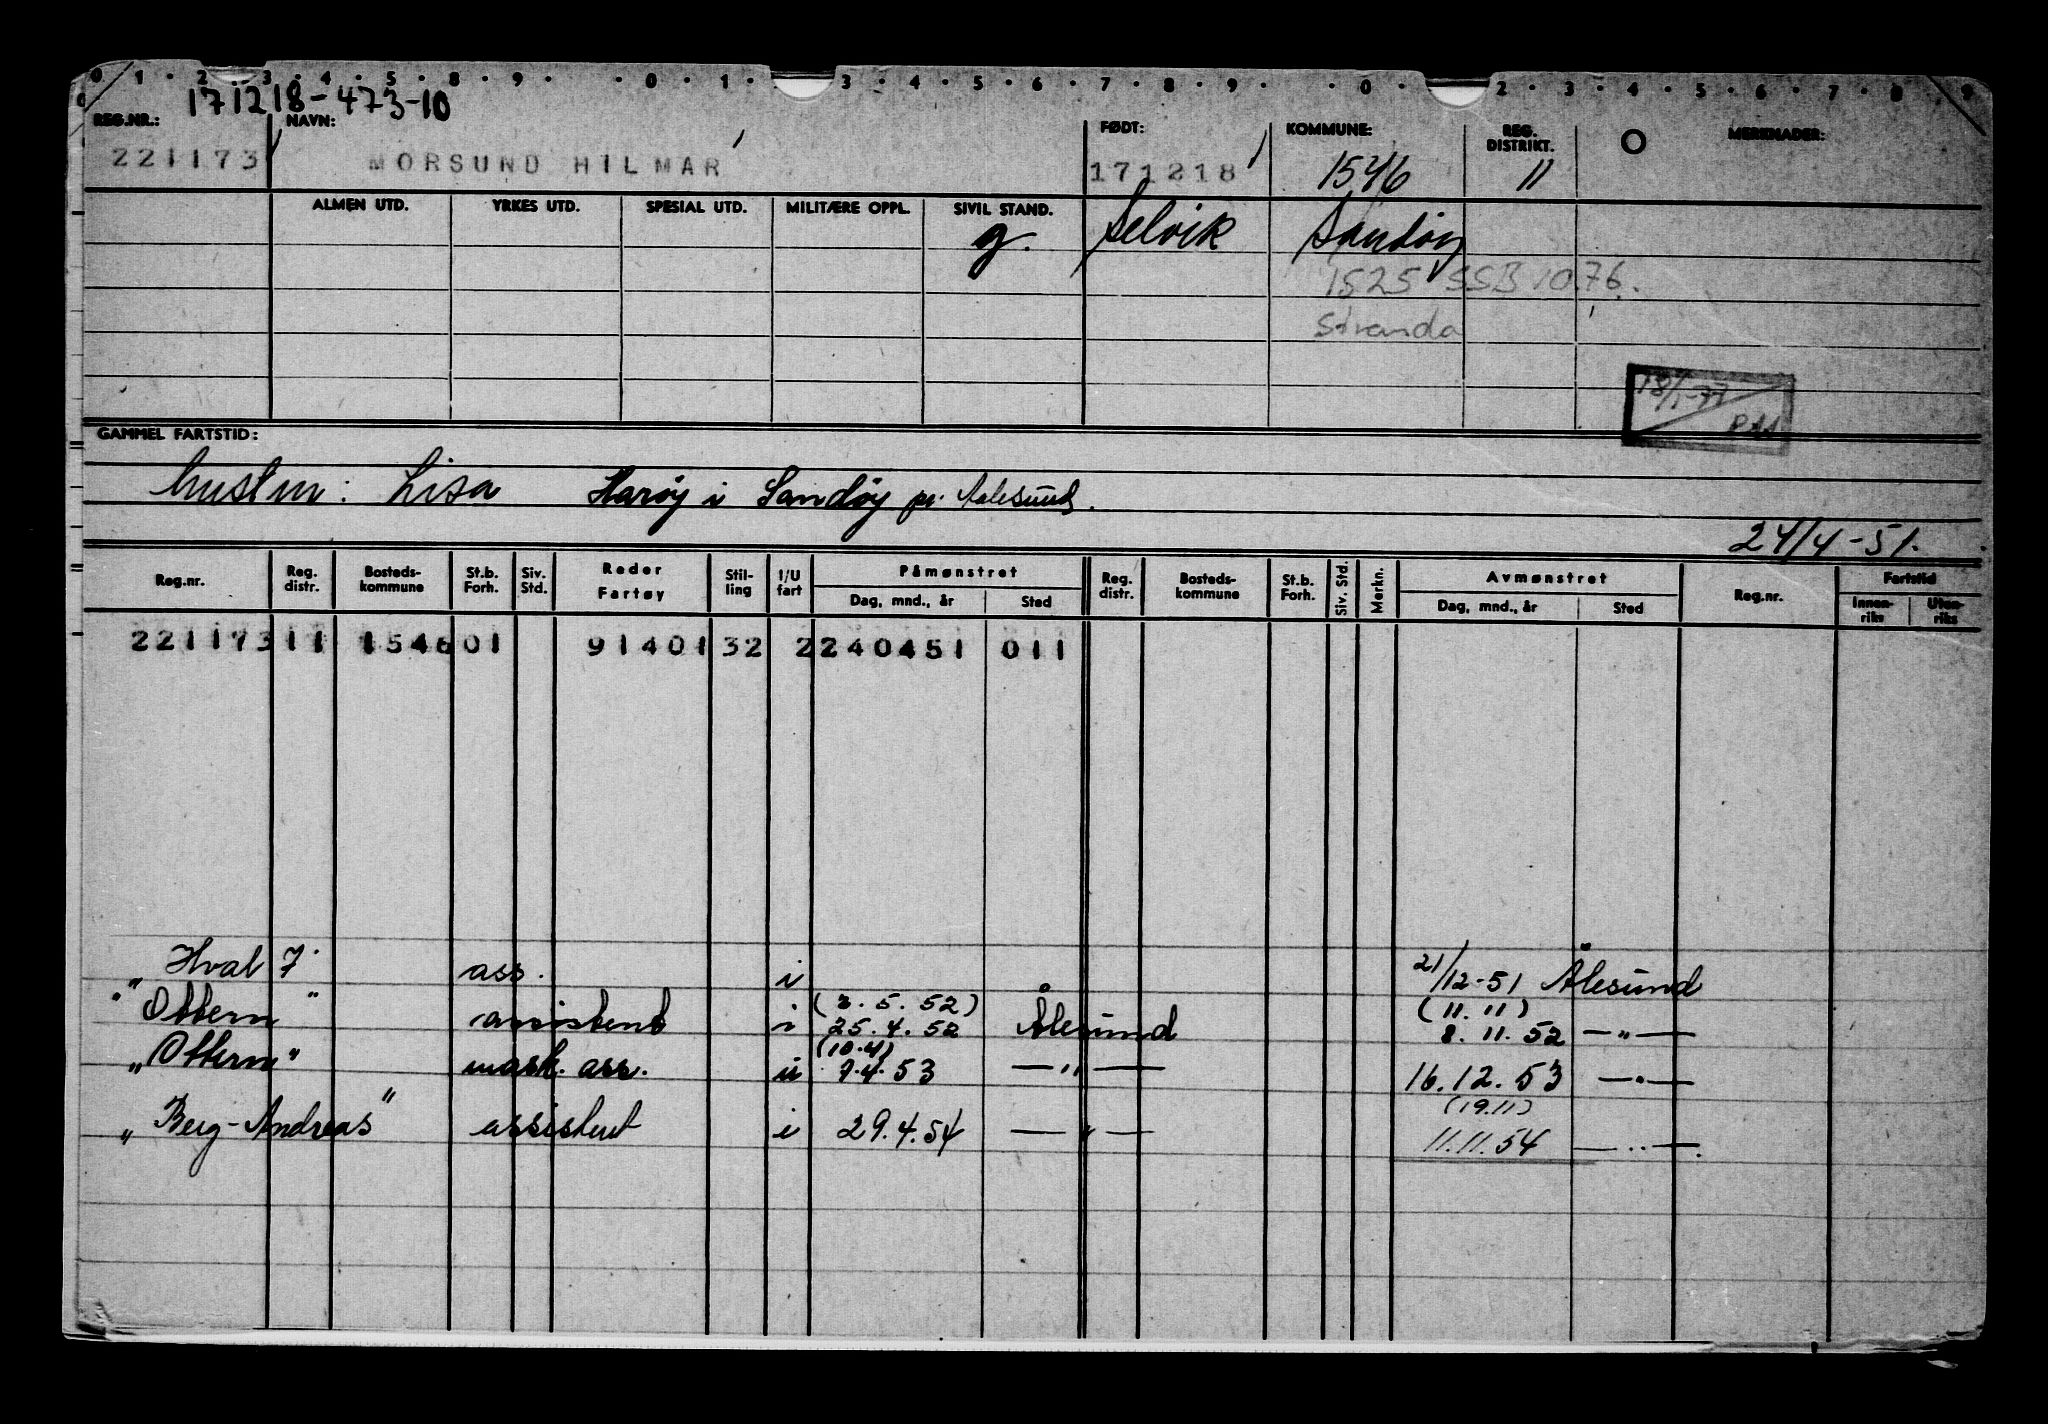 0 1 . 2 . 3 . 4 . 5 . 8 . 9 . . 0 . 1 . 3 . 4 . 5 . 6 . 7 . 8 . 9 . . 0 . 2 . 3 . 4 . 5 . 6 . 7 . 8 . 9
171218-473-10
REG.NR.: NAVN: FØDT: KOMMUNE: REG. DISTRIKT. MERKNADER:
221173 MORSUND HILMAR 171218 1546 11
ALMEN UTD. YRKES UTD. SPESIAL UTD. MILITÆRE OPPL. SIVIL STAND.
g. Selvik Sandøy
1525 SSB 10.76.
Stranda
18/1-77
GAMMEL FARTSTID:
hustru: Lisa Harøy i Sandøy pr. Aalesund.
24/4-51.
Reg.nr. Reg. distr. Bosteds- kommune St.b. Forh. Siv. Std. Reder Fartøy Stil- ling I/U fart Påmønstret Dag, mnd., år Sted Reg. distr. Bosteds- kommune St.b. Forh. Siv. Std. Merkn. Avmønstret Dag, mnd., år Sted Reg.nr. Fartstid Innen- riks Uten- riks
221173 11 1546 01 91401 32 2 240451 011
Hval 7 ass. i 21/12-51 Ålesund
(2.5.52) (11.11)
"Ottern" assistent i 25.4.52 Ålesund 8.11.52 —"—
(10.4)
"Ottern" mask. ass. u 7.4.53 —"— 16.12.53 —"—
(19.11)
"Berg-Andreas" assistent i 29.4.54 —"— 11.11.54 —"—.